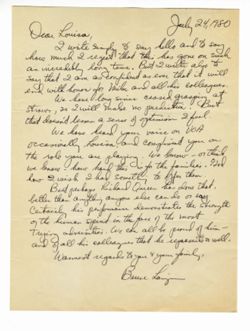 July 24, 1980
Dear Louisa,
I write simply to say hello and to say
how much I regret that this has gone on such
an incredibly long time. But I write also to
say that I am as confident as ever that it will
end with honor for Mike and all his colleagues.
We have long since ceased grasping at
straws, so I will make no prediction. But
that doesn't lessen a sense of optimism I feel.
We have heard your voice on VOA
occasionally, Louisa, and compliment you on
the role you are playing. We know - or think
we know - how hard this is for the families. And
how I wish I had something to offer them.
But perhaps Richard Queen has done that
better than anything anyone else can do or say.
Certainly his performance demonstrates the strength
of the human spirit in the face of the most
trying adversities. We can all be proud of him
and of all his colleagues that he represents so well.
Warmest regards to you & your family,
Bruce